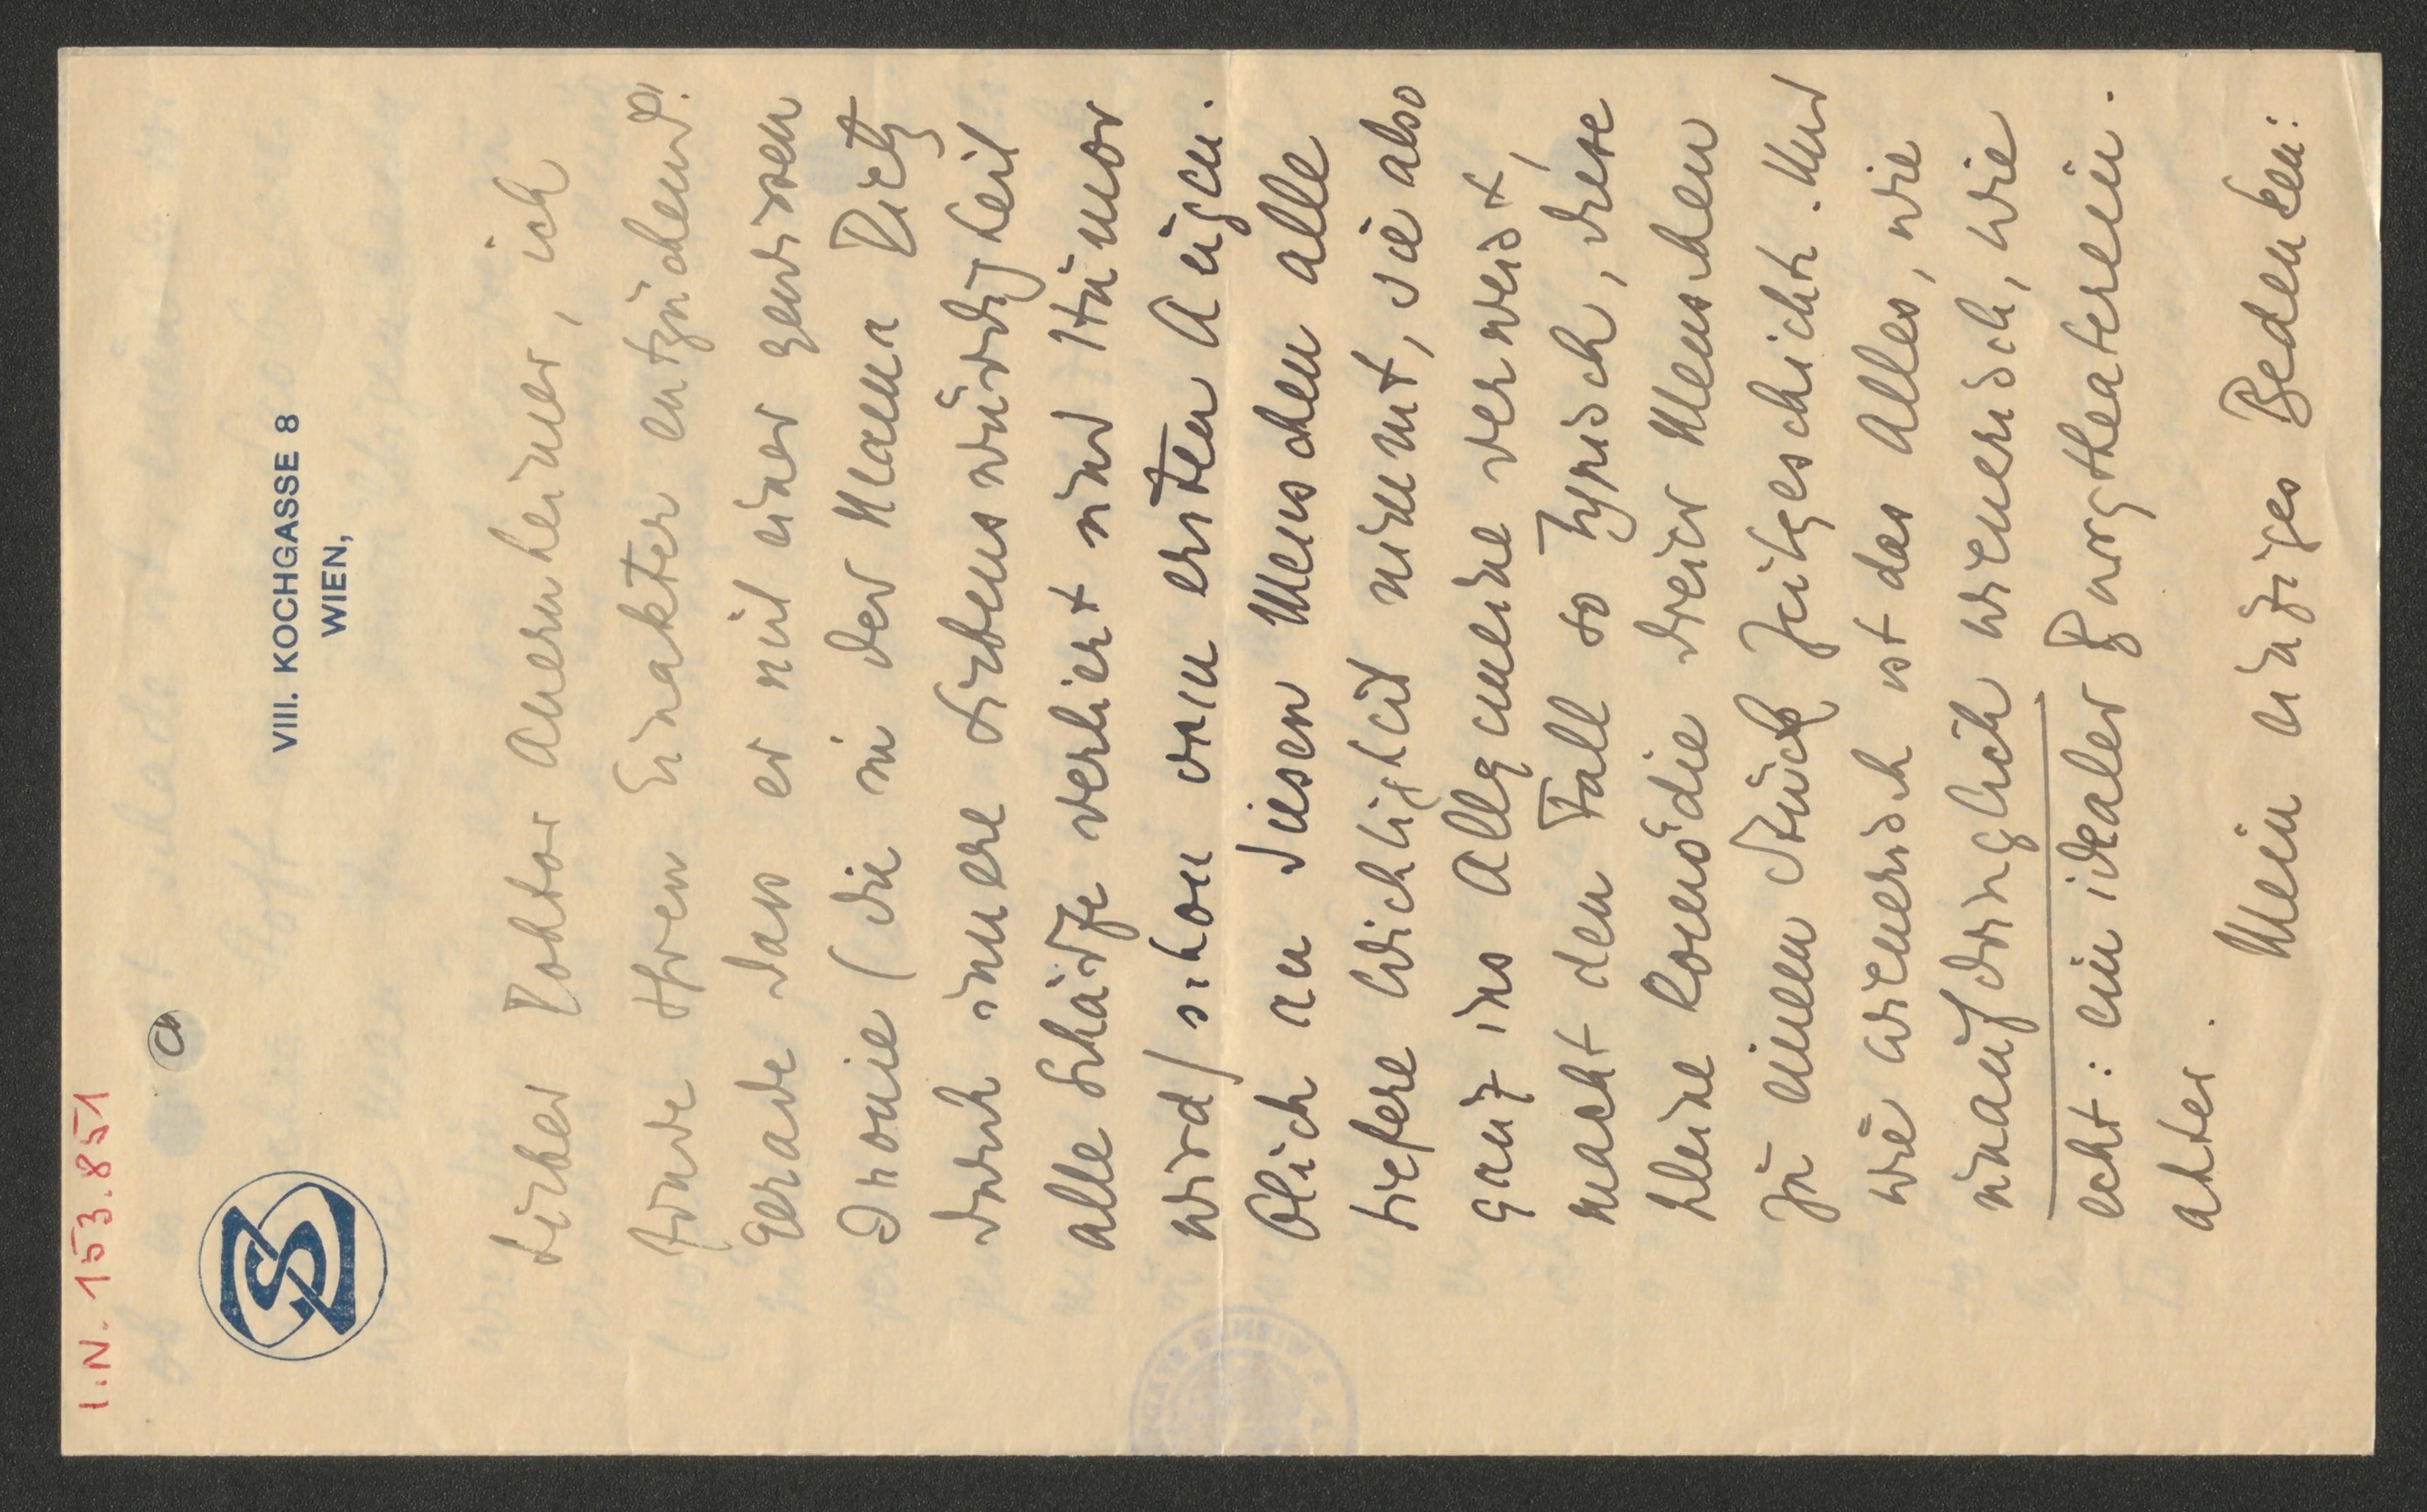 I.N. 153.851
VIII. KOCHGASSE 8
WIEN,
Lieber Doktor Auernheimer, ich
finde Ihren Einakter entzückend!
Gerade dass er mit einer gewissen
Ironie (die in der Mann
durch innere Liebenswürdigkeit
alle Schärfe verliert und Humor
wird) schon vom ersten Augen.
blick an diesen Menschen alle
tiefere Wichtigkeit nimmt, sie also
ganz ins Allgemeine verweist,
macht den Fall so typisch, diese
kleine Komödie dreier Menschen
zu einem Stück Zeitgeschichte. Und
wie wienerisch ist das Alles, wie
unaufdringlich wienerisch, wie
echt: ein idealer Burgtheaterein.
akter.
Mein einziges Bedenken: